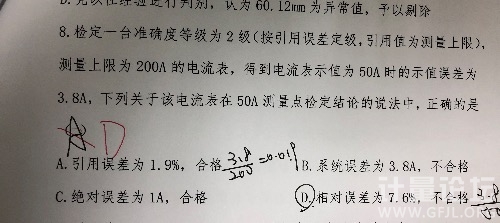 B.凭以往经验进行判别，认为60.12mm为异常值，予以剔除
8.检定一台准确度等级为2级(按引用误差定级,引用值为测量上限),
测量上限为200A的电流表，得到电流表示值为50A时的示值误差为
3.8A，下列关于该电流表在50A测量点检定结论的说法中，正确的是
A D
A.引用误差为1.9%，合格 3.8/200=0.019 B.系统误差为3.8A，不合格
C.绝对误差为1A，合格 D.相对误差为7.6%，不合格 3.8
计量论坛
www.GFJL.ORG